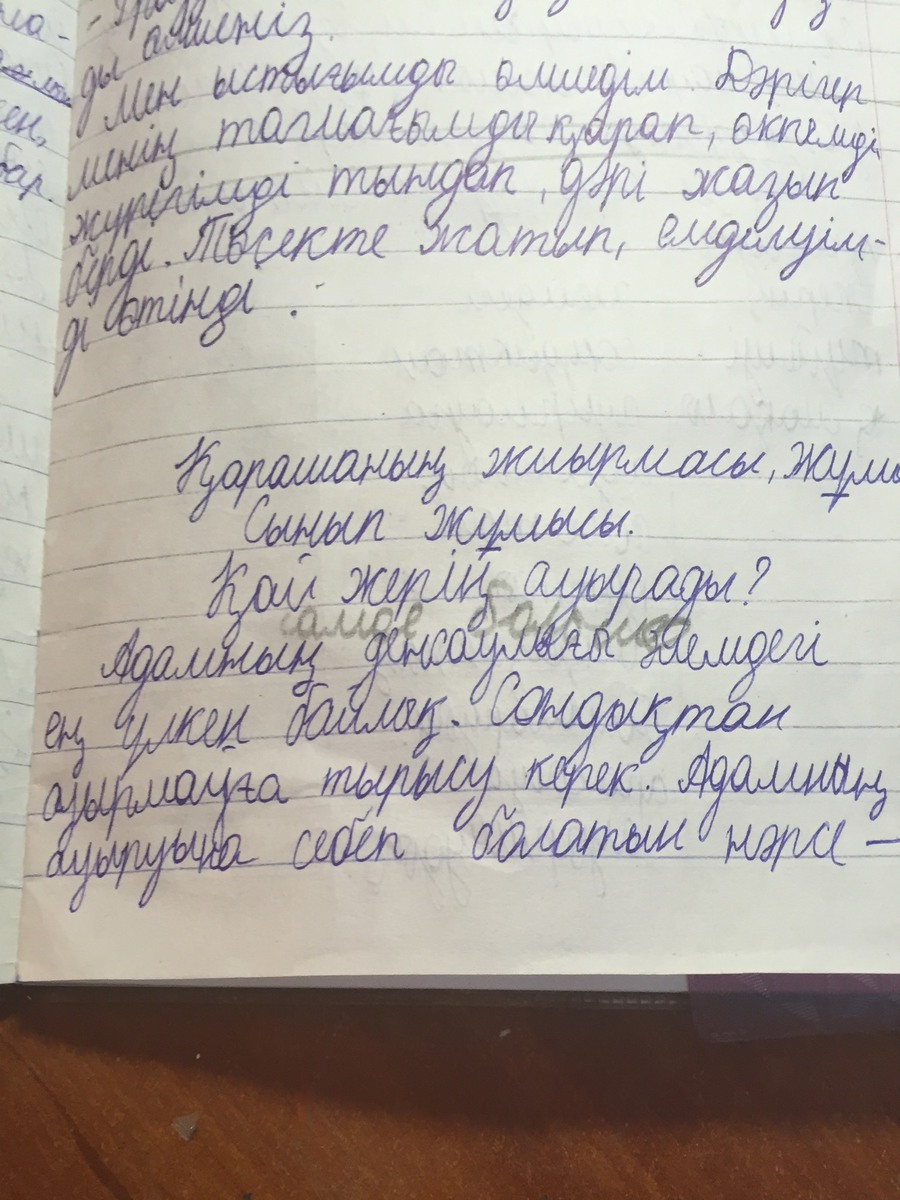 ды
Мен ыстығымды өлшедім. Дәрігер
менің тамағымды қарап, өкпемді
жүрегімді тыңдап, дәрі жазып
берді. Төсекте жатып, емделуім-
ді өтінді.
Қарашаның жиырмасы, жұмы
Сынып жұмысы.
Қай жерің ауырады?
Адамның денсаулығы әлемдегі
ең үлкен байлық. Сондықтан
ауырмауға тырысу керек. Адамның
ауыруына себеп болатын нәрсе –